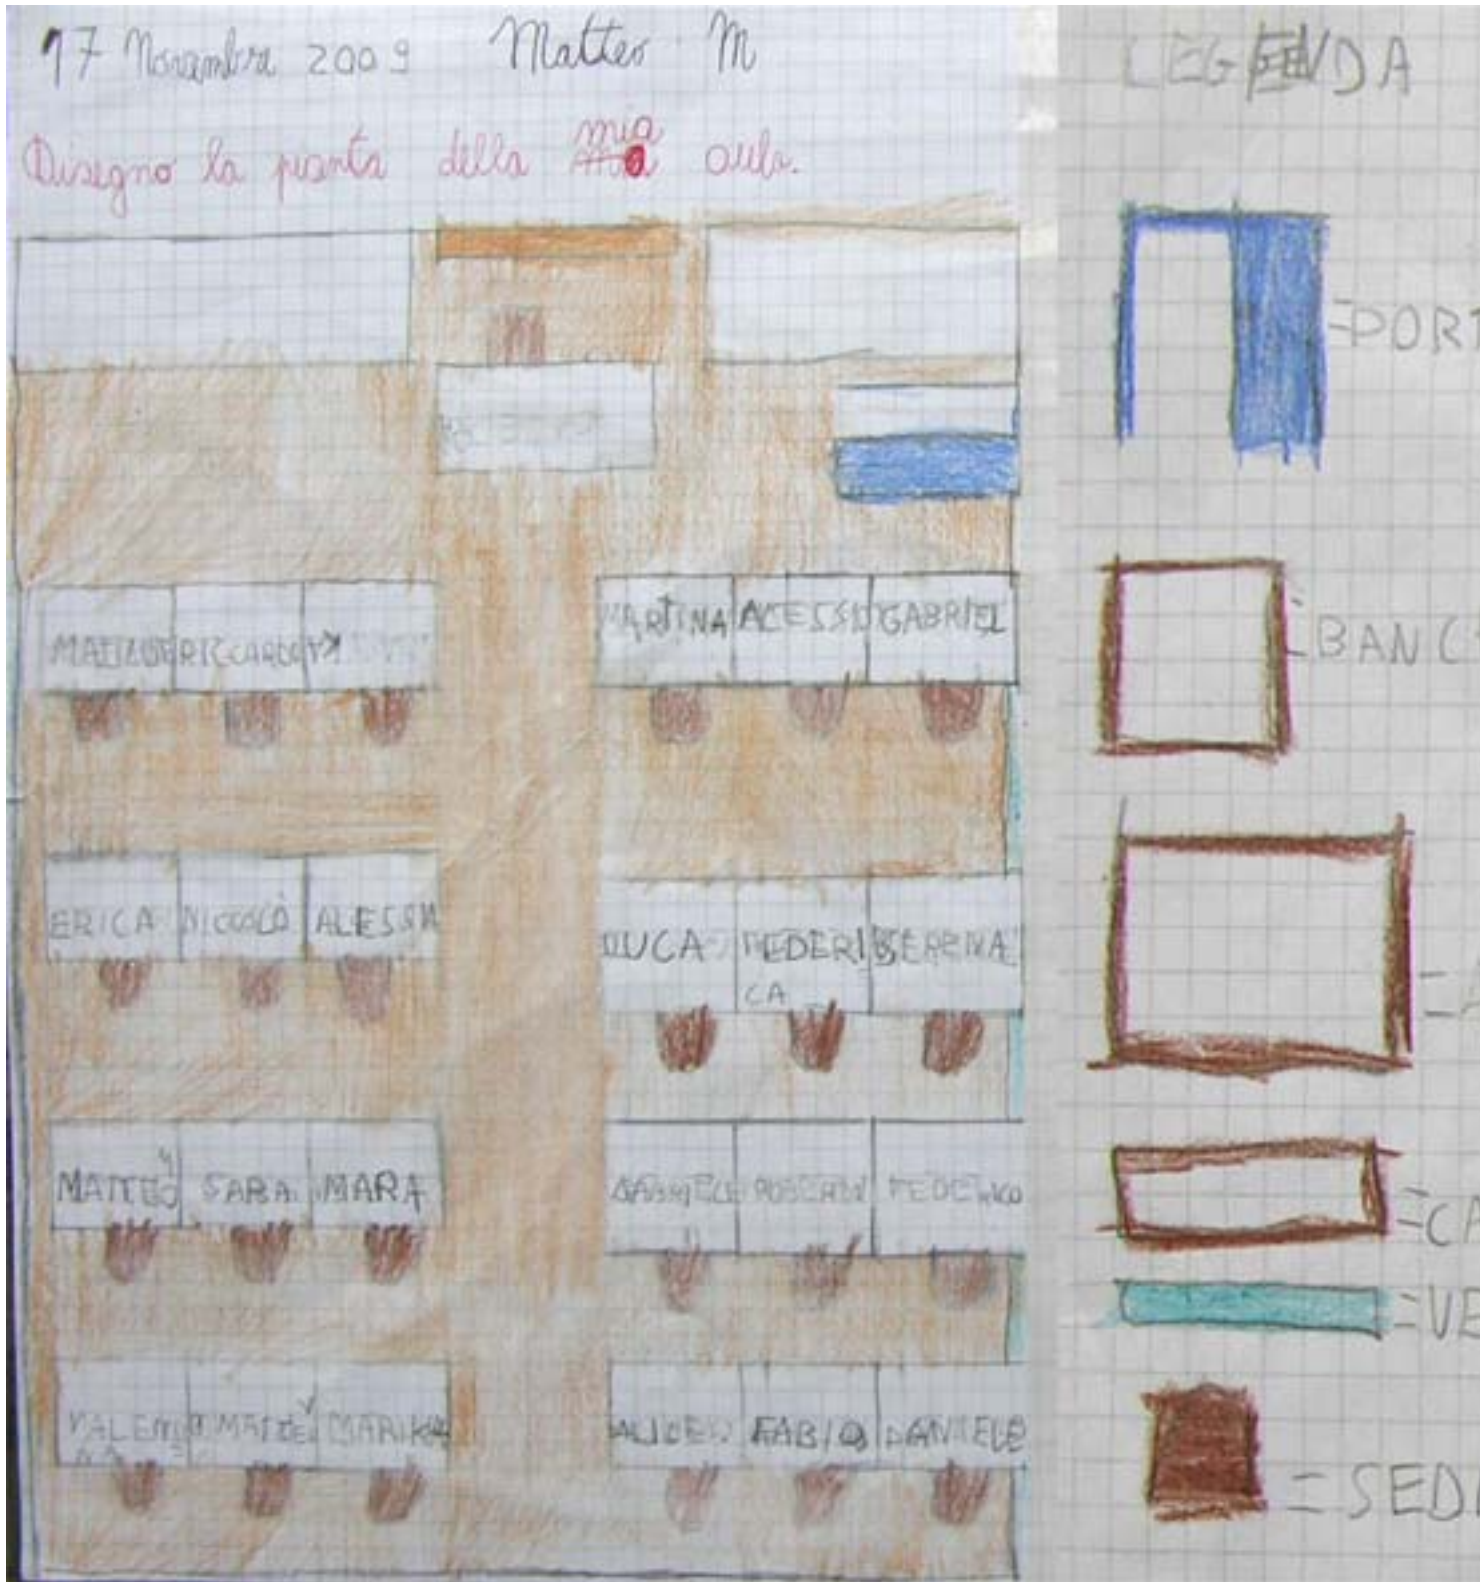 17 Novembre 2009 Matteo M
Disegno la pianta della mia aula.
LEGENDA
=PORT
=BANC
=A
=CA
=VE
=SED
MARTINA ALESSIO GABRIEL
ERICA NICCOLÒ ALESSIA
LUCA FEDERI SERENA
CA
MATTEO SARA MARA
ROBERTO FEDERICO
MATTEO V MARIKA
ALICE FABIO DANIELE